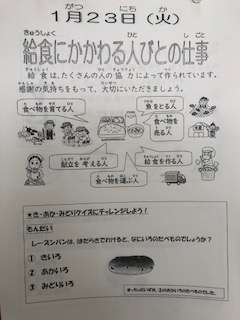 がつ にち か
1月23日(火)
きゅうしょく ひと しごと
給食にかかわる人びとの仕事
給食は、たくさんの人の協力によって作られています。
感謝の気持ちをもって、大切にいただきましょう。
食べ物を育てる人
魚をとる人
食べ物を売る人
献立を考える人
給食を作る人
食べ物を運ぶ人
★き・あか・みどりクイズにチャレンジしよう!
もんだい
レーズンパンは、はたらきでわけると、なにいろのたべものでしょうか?
① きいろ
② あかいろ
③ みどりいろ